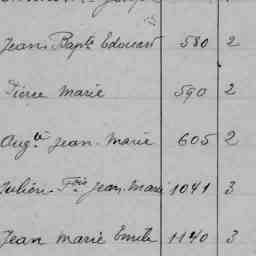 Jean Bapte Edouard 580 2
Pierre Marie 590 2
Augte Jean Marie 605 2
Julien Fois Jean Marie 1041 3
Jean Marie Emile 1140 3